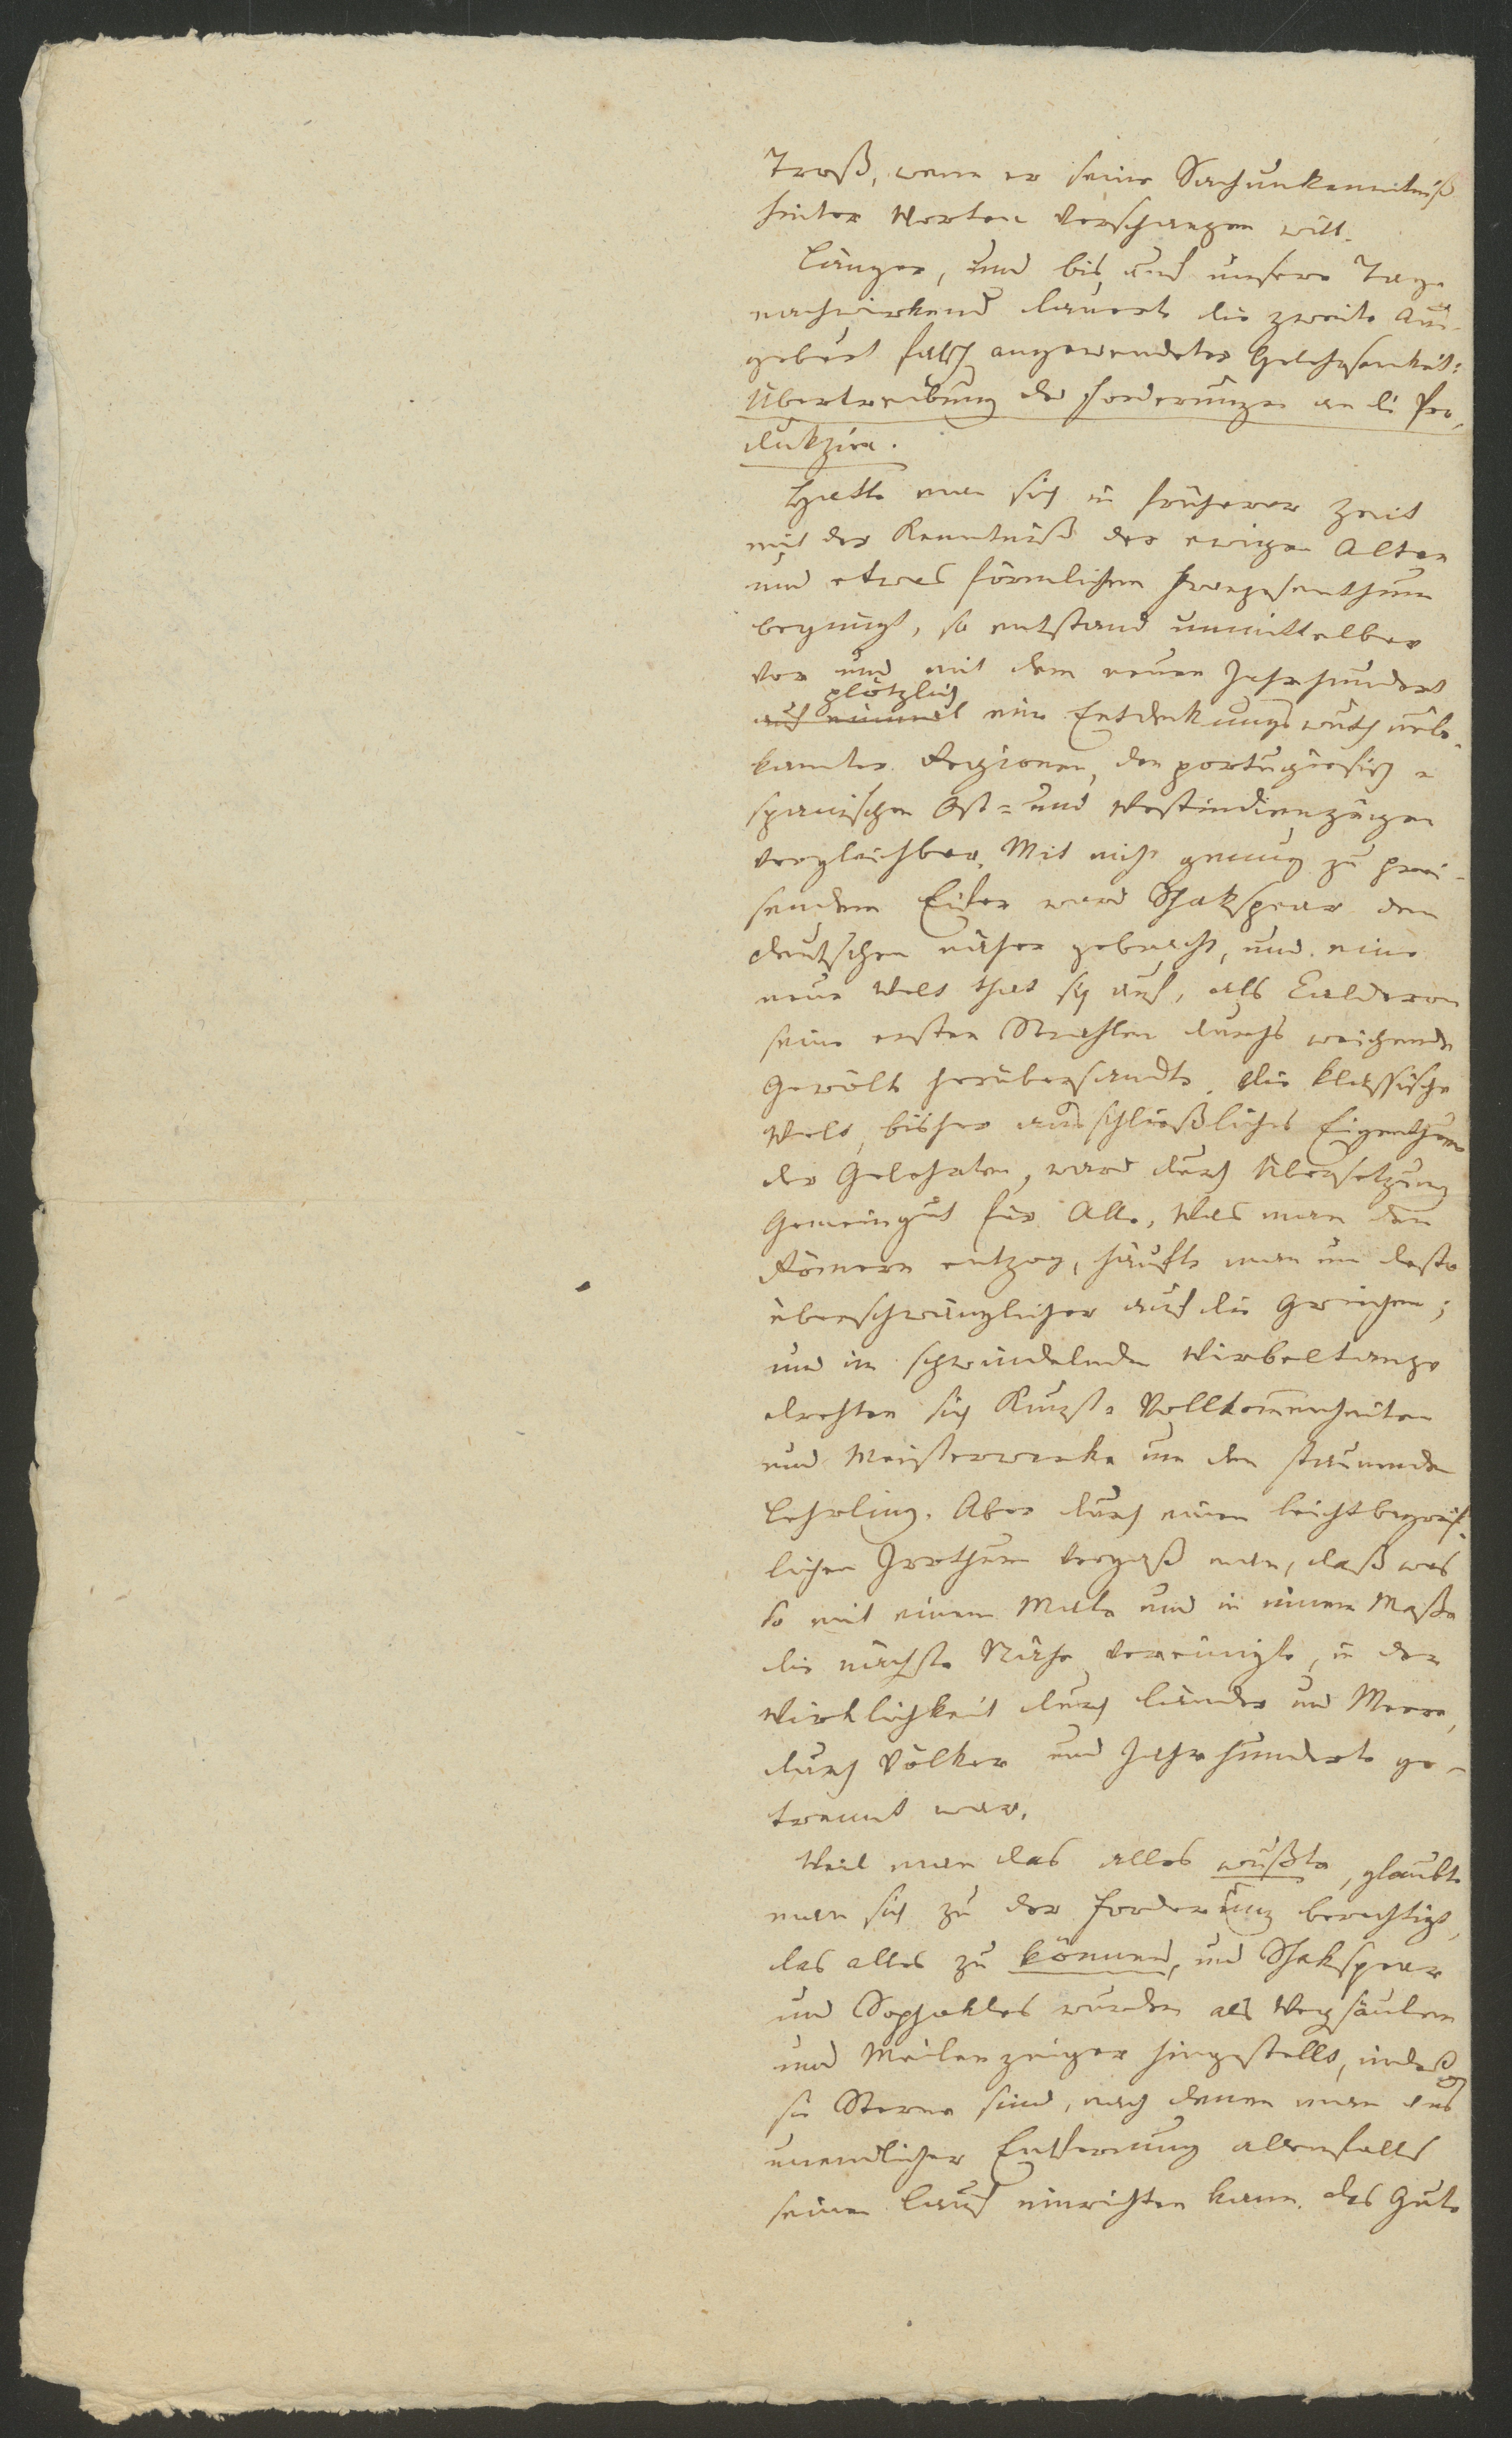 Troß, wenn er seine Sachunkenntniß
hinter Worten verschanzen will.
Länger, und bis auf unsere Tage
nachwirkend dauerte die zweite Aus-
geburt falsch angewendeter Gelehrsamkeit:
Übertreibung der Forderungen an die Pro-
dukzion.
Hatte man sich in früherer Zeit
mit der Kenntniß der ewigen Alten
und etwas förmlichem Franzosenthum
begnügt, so entstand unmittelbar
vor und mit dem neuen Jahrhundert
plötzlich
auf einmal eine Entdeckungswuth unbe-
kannter Regionen, den portugiesisch-
spanischen Ost- und Westindienzügen
vergleichbar. Mit nicht genug zu prei-
sendem Eifer ward Shakspear den
deutschen näher gebracht, und eine
neue Welt that sich auf, als Calderon
seine ersten Strahlen durchs weichende
Gewölk herübersandte. Die klassische
Welt, bisher ausschließliches Eigenthum
der Gelehrten, ward durch Übersetzung
Gemeingut für Alle. Was man den
Römern entzog, häufte man um desto
überschwänglicher auf die Griechen;
und im schwindelnden Wirbeltanze
drehten sich Kunst-Vollkommenheiten
und Meisterwerke um den staunenden
Lehrling. Aber durch einen leichtbegreif-
lichen Irrthum vergaß man, daß was
so mit einem Male und in einem Maße
die nächste Nähe vereinigte, in der
Wirklichkeit durch Länder und Meere,
durch Völker und Jahrhunderte ge-
trennt war.
Weil man das alles wußte, glaubte
man sich zu der Forderung berechtigt,
das alles zu können, und Shakspear
und Sophokles wurden als Wegsäulen
und Meilenzeiger hingestellt, indeß
sie Sterne sind, nach denen man aus
unendlicher Entfernung allenfalls
seinen Lauf einrichten kann. Das Gute